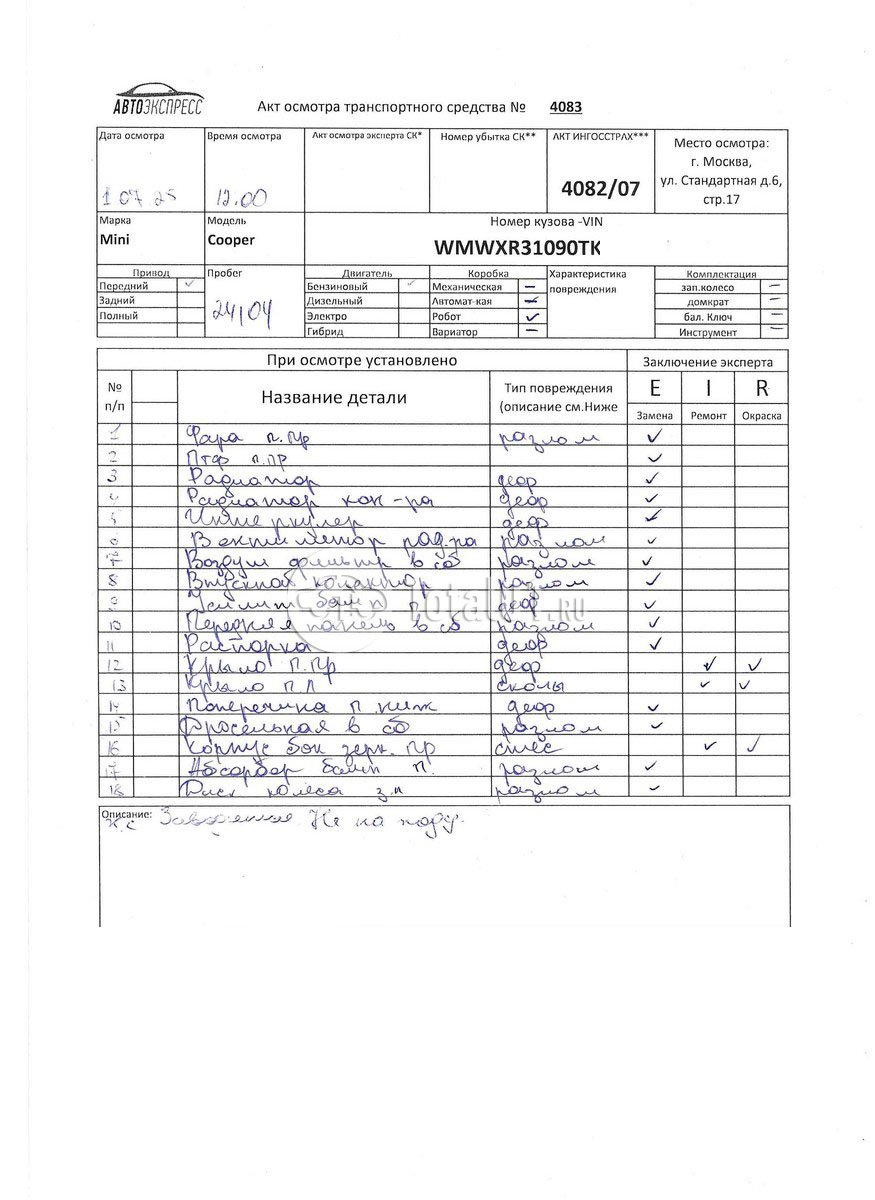 АВТОЭКСПРЕСС
Акт осмотра транспортного средства № 4083
Дата осмотра
Время осмотра
Акт осмотра эксперта СК*
Номер убытка СК**
АКТ ИНГОССТРАХ***
Место осмотра:
г. Москва,
ул. Стандартная д.6,
стр.17
1 07 25
12.00
4082/07
Марка
Mini
Модель
Cooper
Номер кузова -VIN
WMWXR31090TK
Привод
Передний ✓
Задний
Полный
Пробег
Двигатель
Бензиновый ✓
Дизельный
Электро
Гибрид
Коробка
Механическая –
Автомат-кая
Робот ✓
Вариатор –
Характеристика
повреждения
Комплектация
зап.колесо –
домкрат –
бал. Ключ –
Инструмент –
При осмотре установлено
Заключение эксперта
№
п/п
Название детали
Тип повреждения
(описание см.Ниже
E I R
Замена Ремонт Окраска
1 Фара п.пр разлом ✓
2 Птф п.пр ✓
3 Радиатор деф ✓
4 Радиатор кон-ра деф ✓
5 Интеркулер деф ✓
6 Вентилятор рад-ра разлом ✓
7 Воздуш фильтр в сб разлом ✓
8 Впускной колектор разлом ✓
9 Усилит бамп п деф ✓
10 Передняя панель в сб разлом ✓
11 Распорка деф ✓
12 Крыло п.пр деф ✓ ✓
13 Крыло п л сколы ✓ ✓
14 Поперечина п ниж деф ✓
15 Дросельная в сб разлом ✓
16 Корпус бок зерк. пр ✓ ✓
17 Абсорбер бамп п. разлом ✓
18 Диск колеса з.п разлом ✓
Описание:
Не на ходу.
STO TotalCar.RU